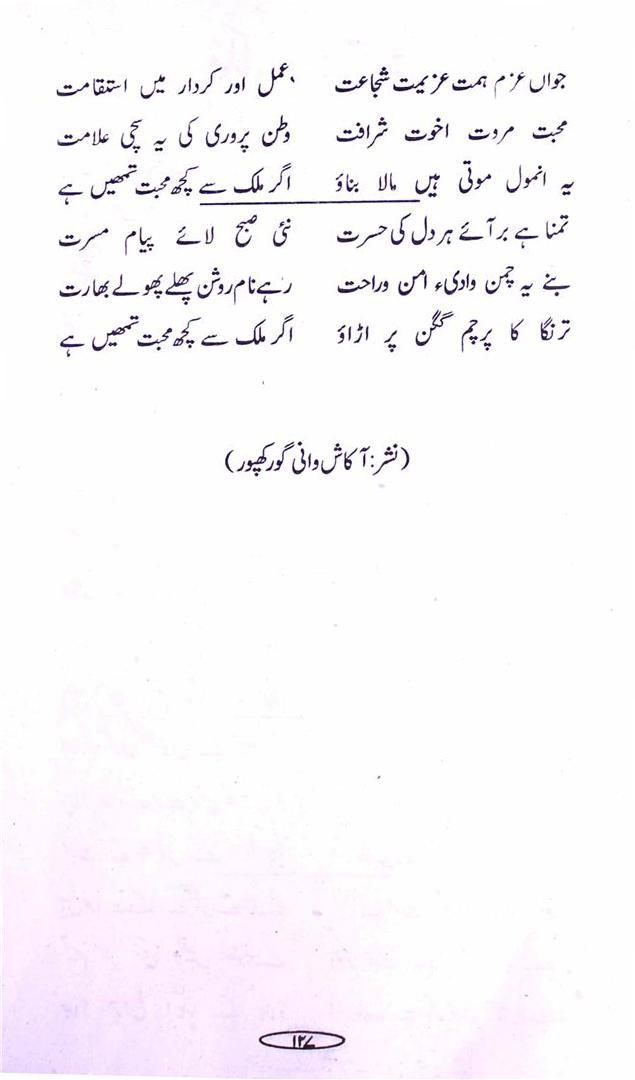 جواں عزم ہمت عزیمت شجاعت عمل اور کردار میں استقامت
محبت مروت اخوت شرافت وطن پروری کی یہ سچی علامت
یہ انمول موتی ہیں مالا بناؤ اگر ملک سے کچھ محبت تمھیں ہے
تمنا ہے بر آئے ہر دل کی حسرت نئی صبح لائے پیام مسرت
بنے یہ چمن وادیء امن و راحت رہے نام روشن پھلے پھولے بھارت
ترنگا کا پرچم گگن پر اڑاؤ اگر ملک سے کچھ محبت تمھیں ہے
(نشر: آکاش وانی گورکھپور)
۱۲۷